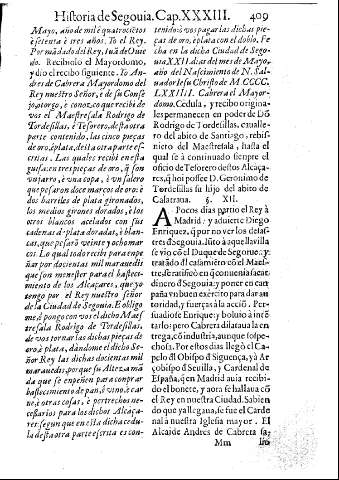 Historia de Segouia. Cap. XXXIII. 409
Mayo, año de mil è quatrociẽtos
è setenta è tres años. Yo el Rey.
Por mãdado del Rey, Iuã de Ouie
do. Recibiolo el Mayordomo,
y dio el recibo siguiente. Yo An
dres de Cabrera Mayordomo del
Rey nuestro Señor, è de su Conse
jo, otorgo, è conozco, que recibi de
vos el Maestresala Rodrigo de
Tordesillas, è Tesorero, desta otra
parte contenido, las cinco pieças
de oro, è plata, desta otra parte es-
critas. Las quales recibi en esta
guisa, en tres pieças de oro, q̃ son
vn jarro, è vna copa, è vn salero
que pesaron doce marcos de oro: è
dos barriles de plata gironados,
los medios girones dorados, è los
otros blancos acelados con sus
cadenas d̃ plata doradas, è blan-
cas, que pesarõ veinte y ocho mar
cos. Lo qual todo recibi para em-
peñar por docientas mil marauedis
que son menester para el bastecimien
to de los Alcaçares, que yo
tengo por el Rey nuestro señor
de la Ciudad de Segouia. E obligo
me, è pongo con vos el dicho Maes
tresala Rodrigo de Tordesillas,
de vos tornar las dichas pieças de
oro, è plata, dàndome el dicho Se-
ñor Rey las dichas docientas mil
marauedis, por que su Alteza mã
da que se empeñen para comprar
bastecimento de pan, è vino, è car
ne, è otras cosas, è pertrechos ne-
cessarios para los dichos Alcaça-
res: segun que en esta dicha cedu-
la desta otra parte escrita es con-
tenido: è vos pagar las dichas pie-
ças, de oro, è plata con el doblo. Fe
cha en la dicha Ciudad de Sego-
uia XXII. dias del mes de Mayo,
año del Nascimiento de N. Sal-
uador Iesu Christo de M CCCC.
LXXIII. Cabrera el Mayor-
domo. Cedula, y recibo origina-
les permanecen en poder de Dõ
Rodrigo de Tordesillas, cauallero
del abito de Santiago, rebis-
nieto del Maestresala, hasta el
qual se à continuado siempre el
oficio de Tesorero destos Alcaça-
res, q̃ ioi possee D. Geronimo de
Tordesillas su hijo del abito de
Calatraua. §. XII.
A Pocos dias partio el Rey à
Madrid: y aduierte Diego
Enriquez, q̃ por no ver los desas-
tres d̃ Segouia. Iũto à aquella villa
se vio cõ el Duque de Segorue: y
tratãdo d̃l casamiẽto cõ el Maes-
tre, se ratificò en q̃ conuenia sacar
dinero d̃ Segouia: y poner en cam
paña vn buen exército para dar au-
toridad, y fuerças à la acciõ. Per-
suadiose Enrique: y boluio à intẽ
tarlo: pero Cabrera dilataua la en
trega, cõ industria, aunque sospe-
chosa. Por estos dias llegò el Ca-
pelo d̃l Obispo d̃ Siguença, yà Ar
çobispo d̃ Seuilla, y Cardenal de
España, q̃ en Madrid auia recibi-
do el bonete, y aora se hallaua cõ
el Rey en nuestra Ciudad. Sabien
do que ya llegaua, se fue el Carde
nal à nuestra Iglesia mayor. El
Alcaide Andres de Cabrera sa-
Mm lio